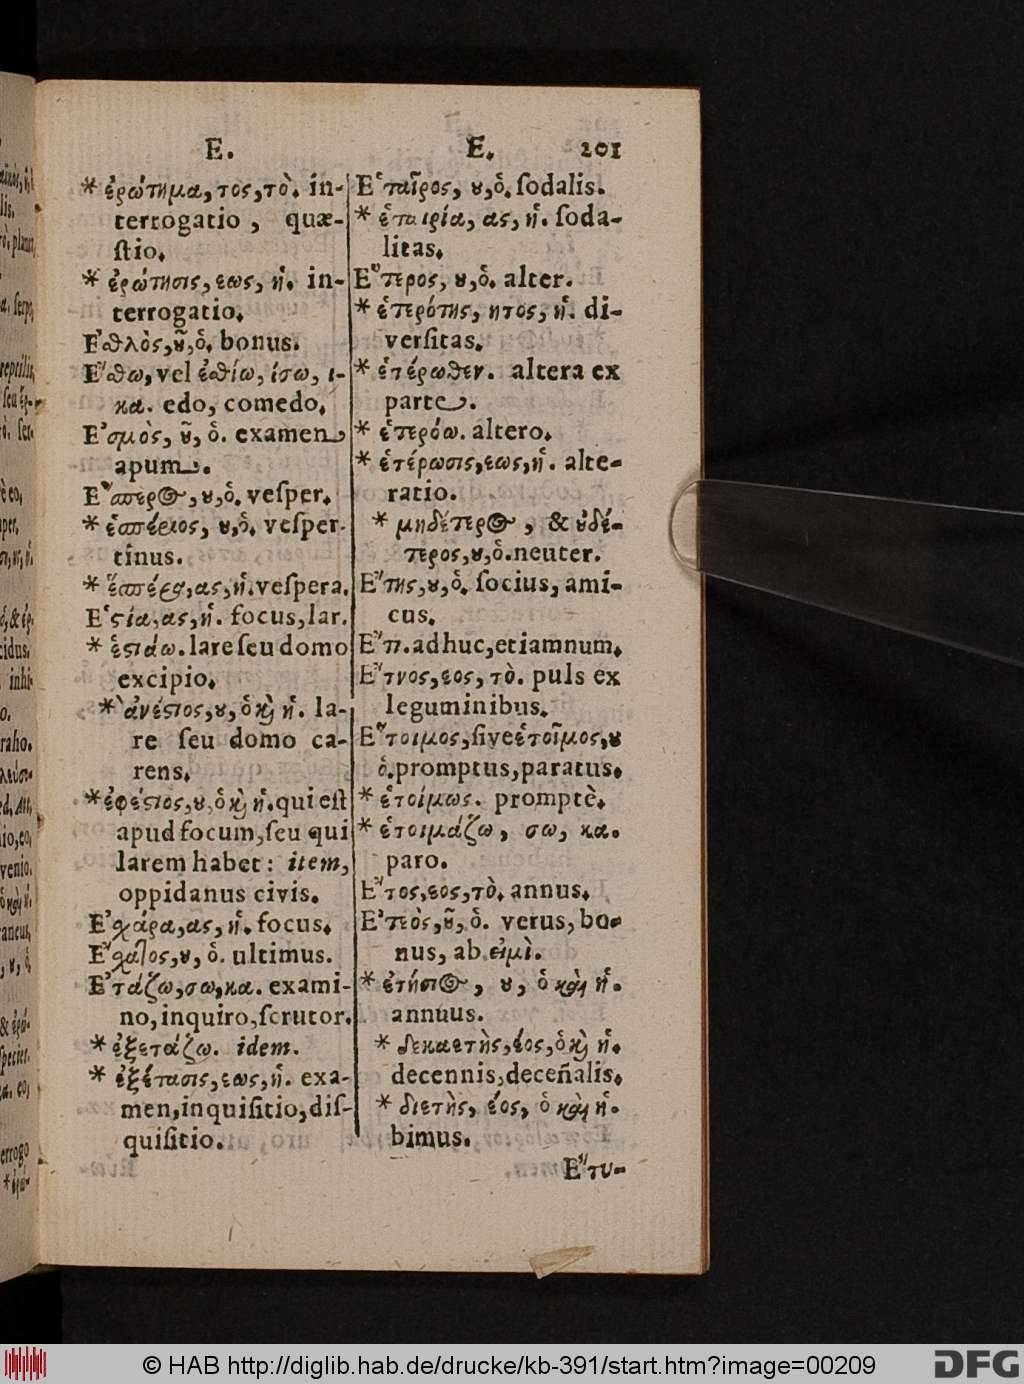 E.
* ἐρώτημα, τος, τὸ. in-
terrogatio, quæ-
ſtio.
* ἐρώτησις, εως, ἡ. in-
terrogatio.
Ἐσθλὸς, ȣ͂, ὁ. bonus.
Ἔσθω, vel ἐσθίω, ίσω, ι-
κα. edo, comedo.
Ἐσμὸς, ȣ͂, ὁ. examen
apum.
Ἕσπερος, ȣ, ὁ. veſper.
* ἑσπέριος, ȣ, ὁ. veſper-
tinus.
* ἕσπέρα, ας, ἡ. veſpera.
Ἑστία, ας, ἡ. focus, lar.
* ἑστιάω. lare ſeu domo
excipio.
* ἀνέστιος, ȣ, ὁ καὶ ἡ. la-
re ſeu domo ca-
rens.
* ἐφέστιος, ȣ, ὁ καὶ ἡ. qui eſt
apud focum, ſeu qui
larem habet: item,
oppidanus civis.
Ἐσχάρα, ας, ἡ. focus.
Ἔσχατος, ȣ, ὁ. ultimus.
Ἐτάζω, σω, κα. exami-
no, inquiro, ſcrutor.
* ἐξετάζω. idem.
* ἐξέτασις, εως, ἡ. exa-
men, inquiſitio, diſ-
quiſitio.
E. 201
Ἑταῖρος, ȣ, ὁ. ſodalis.
* ἑταιρία, ας, ἡ. ſoda-
litas.
Ἕτερος, ȣ, ὁ. alter.
* ἑτερότης, ητος, ἡ. di-
verſitas.
* ἑτέρωθεν. altera ex
parte.
* ἑτερόω. altero.
* ἑτέρωσις, εως, ἡ. alte-
ratio.
* μηδέτερος, & ȣ̓δέ-
τερος, ȣ, ὁ. neuter.
Ἔτης, ȣ, ὁ. ſocius, ami-
cus.
Ἔτι. adhuc, etiamnum.
Ἔτνος, εος, τὸ. puls ex
leguminibus.
Ἕτοιμος, ſive ἑτοῖμος, ȣ
ὁ. promptus, paratus.
* ἑτοίμως. promptè.
* ἑτοιμάζω, σω, κα.
paro.
Ἔτος, εος, τὸ. annus.
Ἐτεὸς, ȣ͂, ὁ. verus, bo-
nus, ab εἰμὶ.
* ἐτήσιος, ȣ, ὁ καὶ ἡ.
annuus.
* δεκαετὴς, έος, ὁ καὶ ἡ.
decennis, deceñalis.
* διετὴς, έος, ὁ καὶ ἡ.
bimus.
Ἔτυ-
© HAB http://diglib.hab.de/drucke/kb-391/start.htm?image=00209
DFG